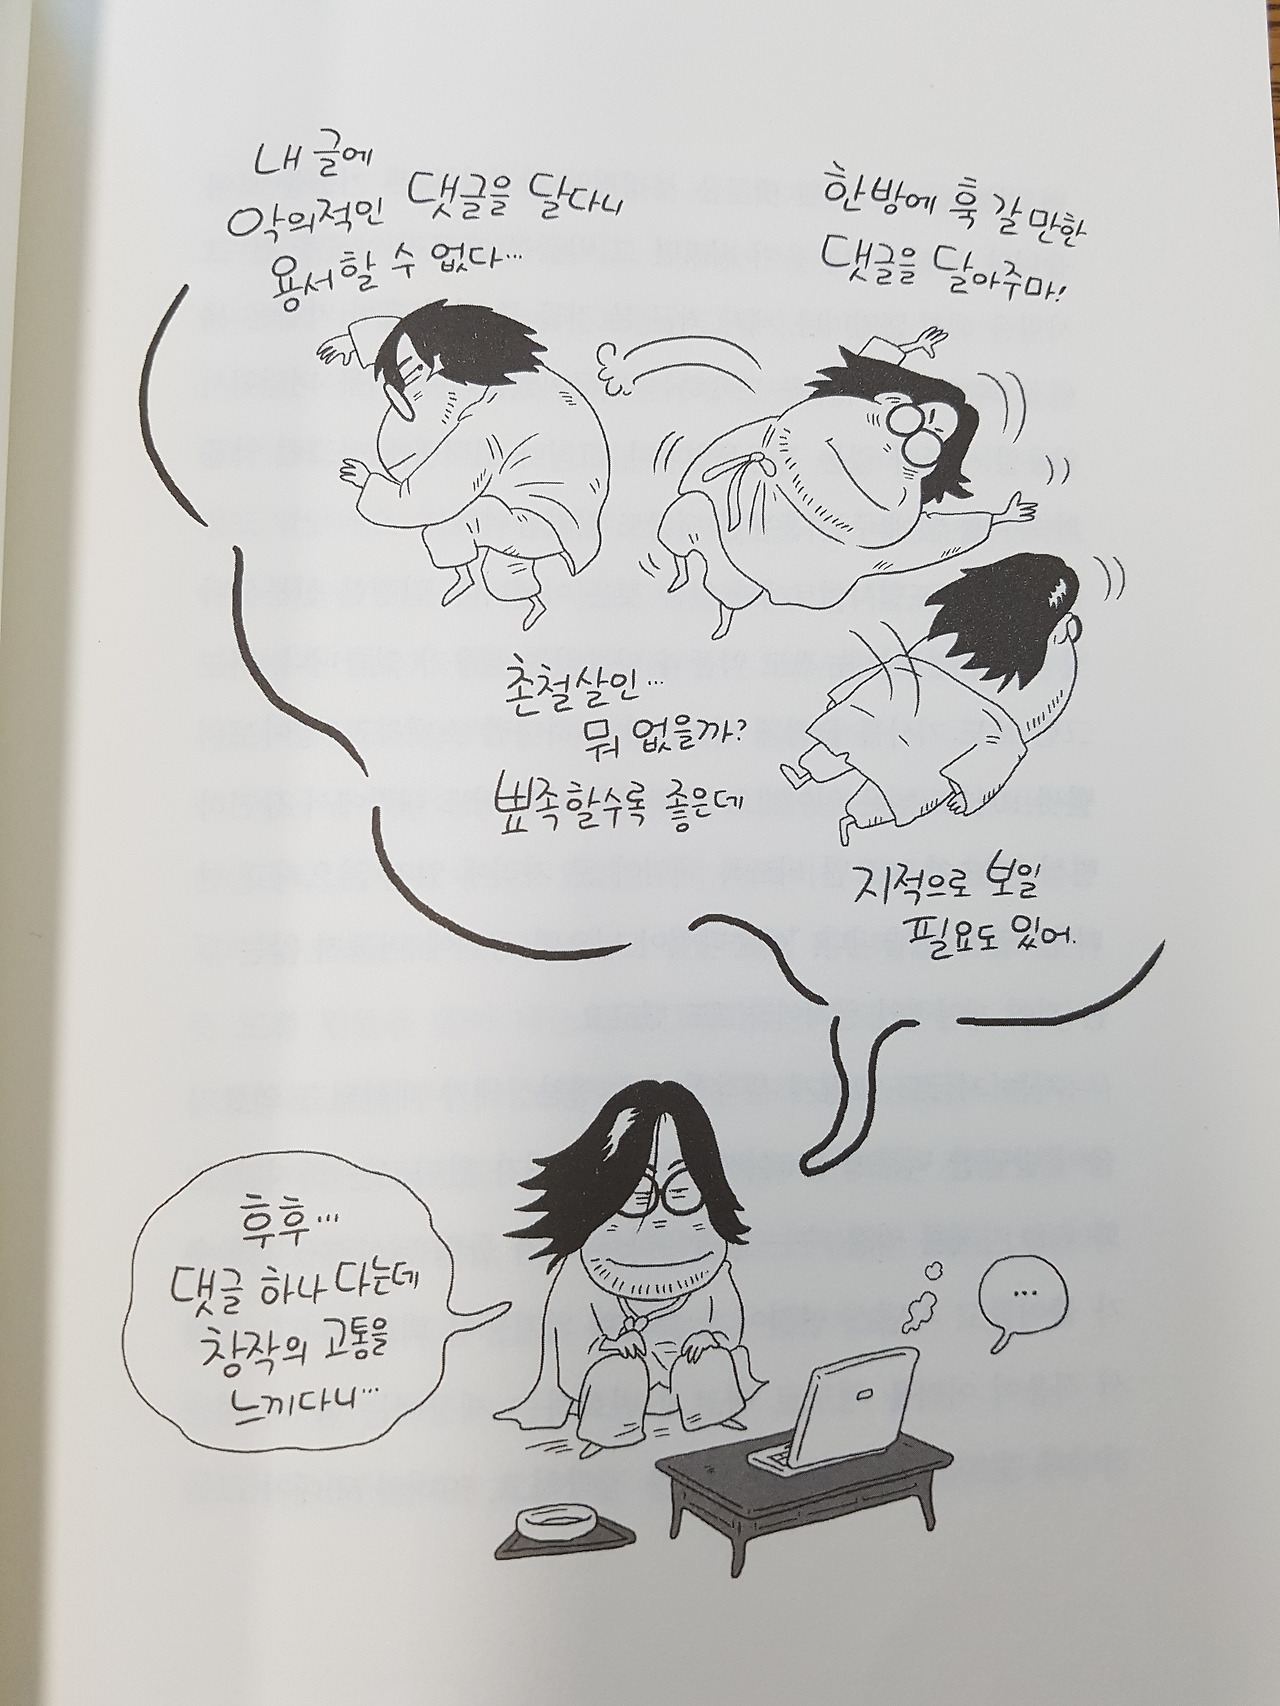 내 글에
악의적인 댓글을 달다니
용서할 수 없다...
한방에 훅 갈 만한
댓글을 달아주마!
촌철살인...
뭐 없을까?
뾰족할수록 좋은데
지적으로 보일
필요도 있어.
후후...
댓글 하나 다는데
창작의 고통을
느끼다니...
...